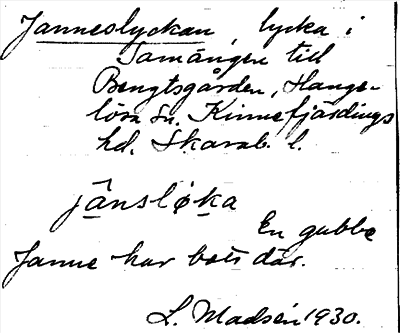 Janneslyckan, lycka i
Samängen till
Bengtsgården, Hange-
lösa sn. Kinnefjärdings
hd. Skarab. l.
jânsløka
En gubbe
Janne har bott där.
L. Madsén 1930.